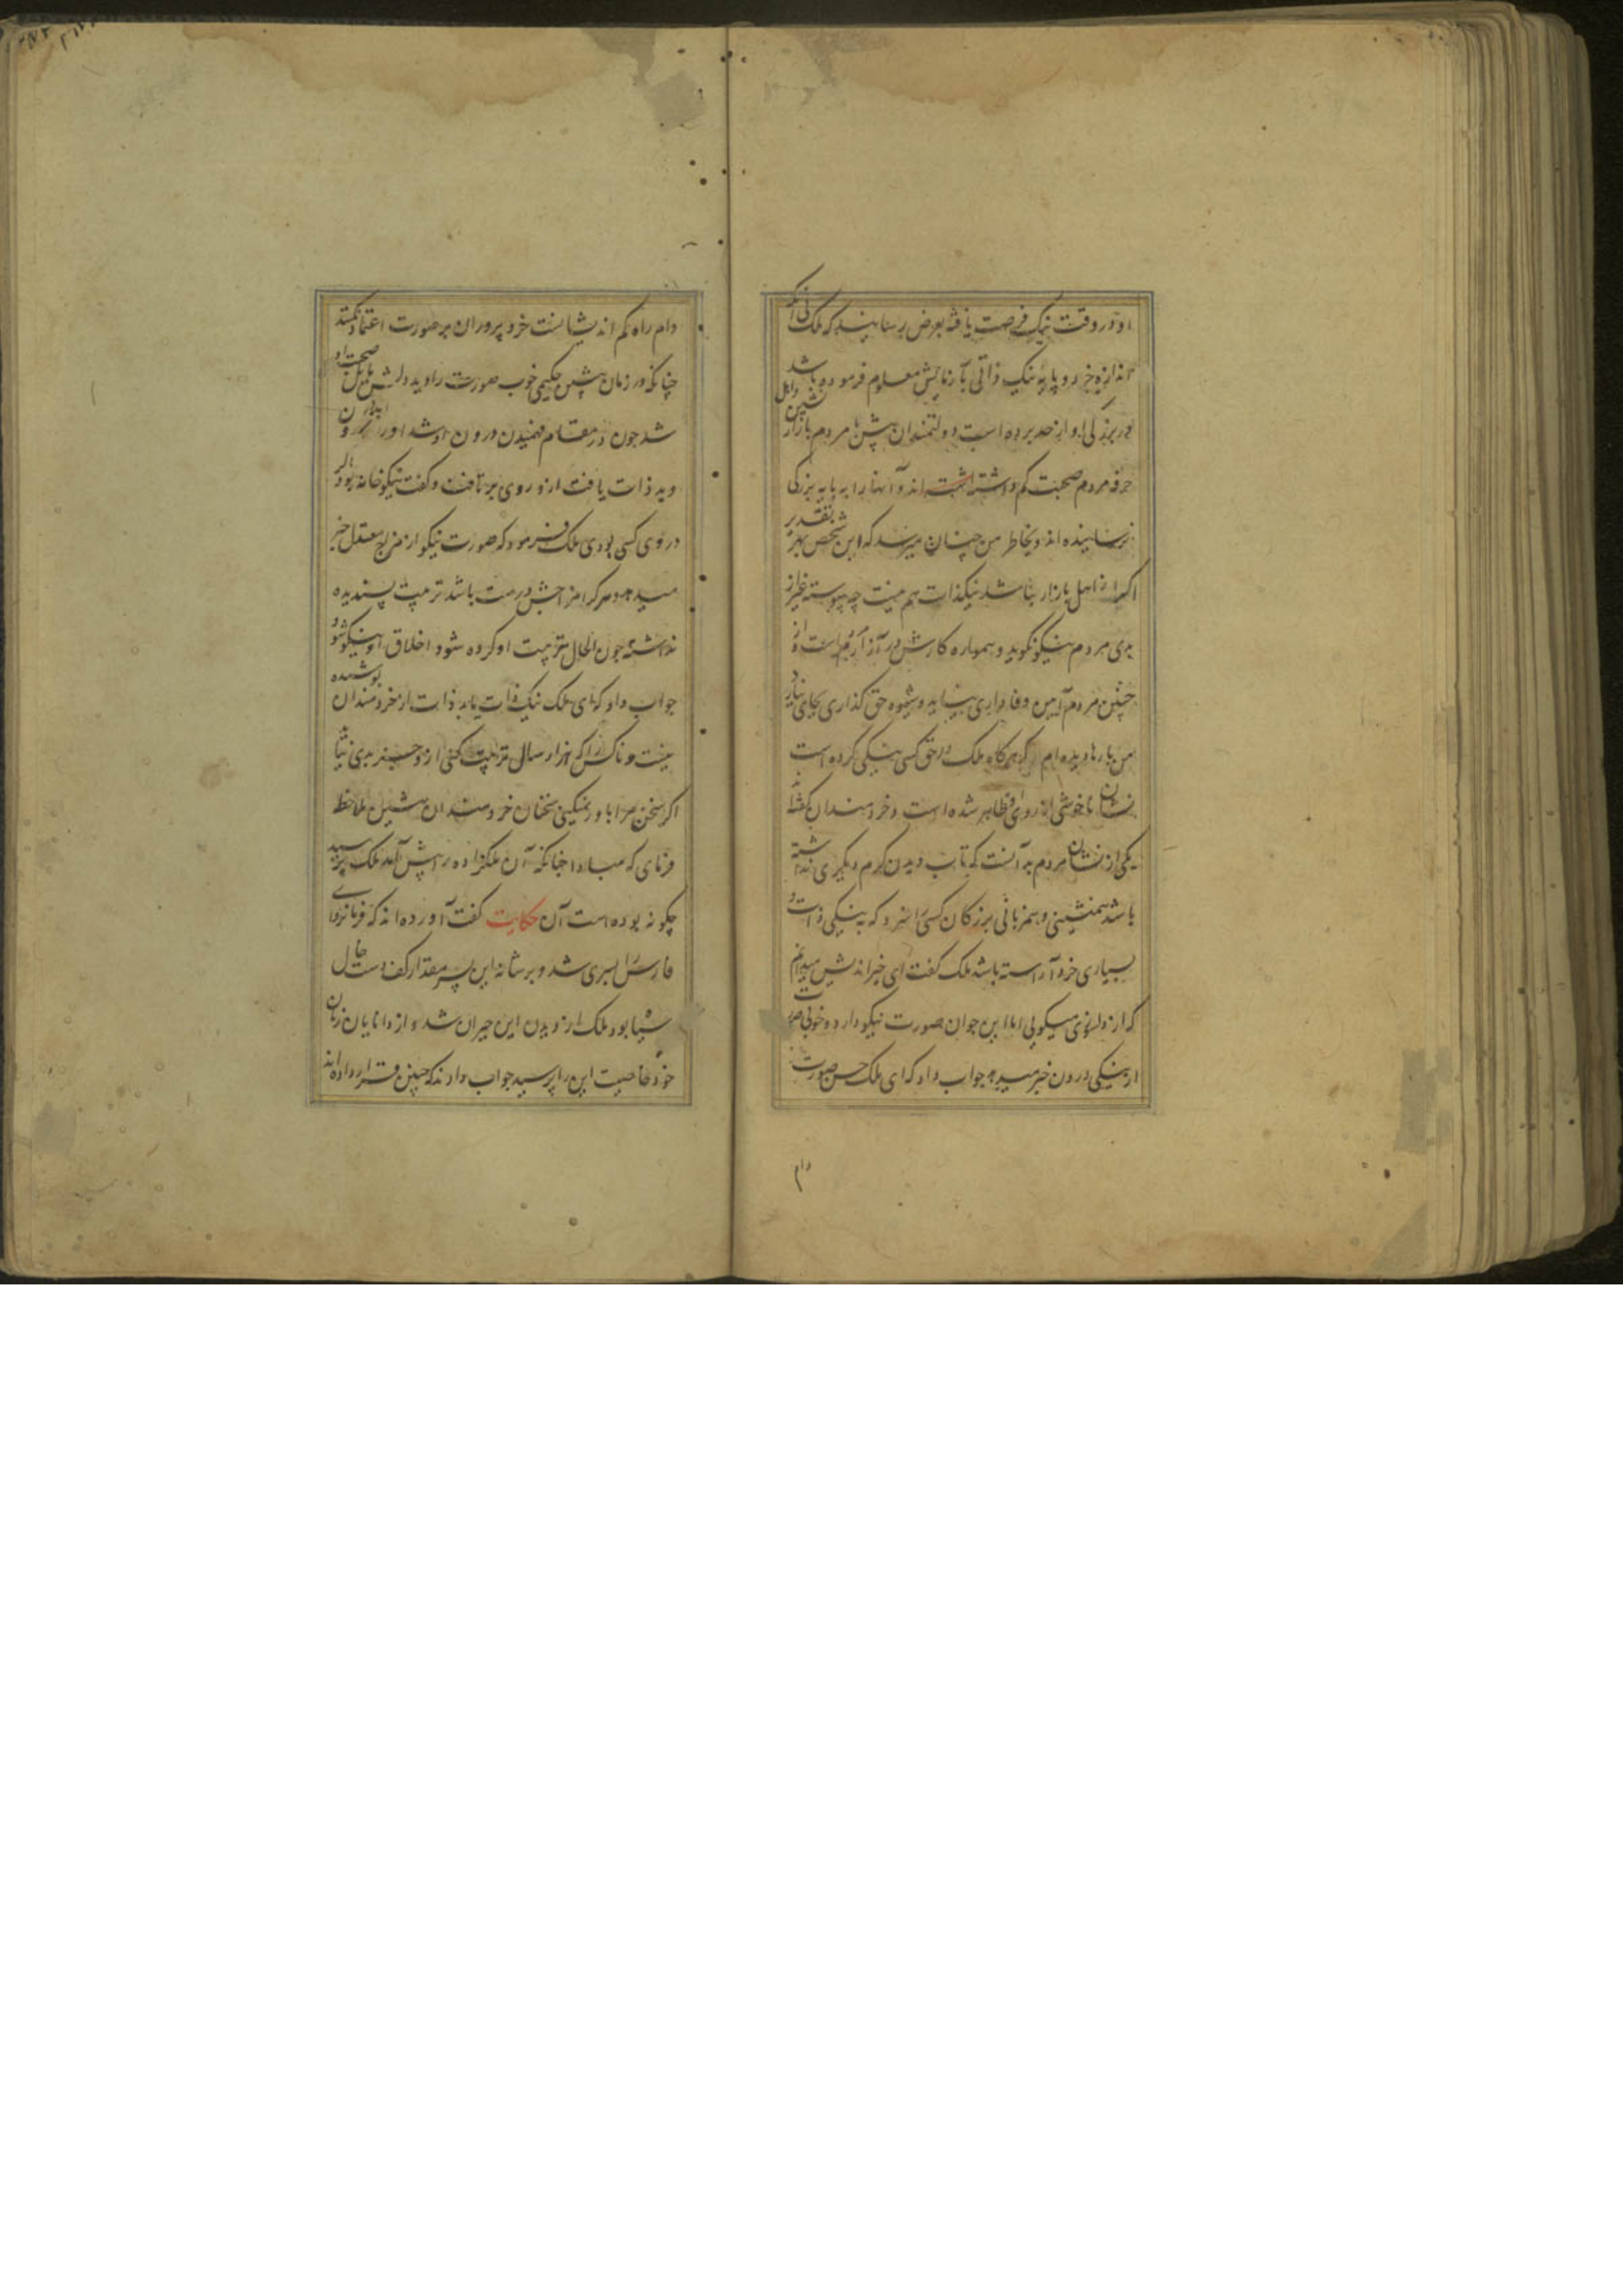 او در وقت نیک فرصت یافته بعرض رسانید که ملک بی آنکه
اندازه خرد و پایه نیک ذاتی بآزمایش معلوم فرموده باشد
در بزرکی او از حد برده است دولتمندان پیشین با مردم بازار و اهل
حرفه مردم صحبت کم داشته اند و آنها را به پایه بزرکی
نرسانیده اند و بخاطر من چنان میرسد که این شخص بهر تقدیر
اکر از اهل بازار نباشد نیکذات هم نیست چه پیوسته غیر از
بدی مردم نیکو نکوید و همواره کارش در آزار مردم است و از
چنین مردم آیین وفاداری نیاید و شیوه حق کذاری بجای نیارد
من بارها دیده ام که هر کاه ملک در حق کسی نیکی کرده است
نشان ناخوشی از روی او ظاهر شده است و خردمندان کفته اند
یکی از نشان مردم بد آنست که تاب دیدن کرم دیکری نداشته
باشد همنشینی و همزبانی بزرکان کسی را سزد که به نیکی ذات و
بسیاری خرد آراسته باشد ملک کفت ای خیراندیش میدانم
که از دلسوزی میکویی اما این جوان صورت نیکو دارد و خوبی صورت
از نیکی درون خبر میدهد جواب داد که ای ملک حسن صورت
دام
دام راه کم اندیشانست خرد پروران بر صورت اعتماد نکنند
چنانکه در زمان پیشین حکیمی خوب صورت را دید دلش مایل صحبت او
شد چون در مقام فهمیدن درون او شد او را
و بد ذات یافت ازو روی برتافت و کفت نیکو خانه بود اکر
در وی کسی بودی ملک فرمود که صورت نیکو از مزاج معتدل خبر
میدهد و هر کرا مزاجش درست باشد تربیت پسندیده
نداشته چون الحال تربیت او کرده شود اخلاق او نیکو شود
جواب داد که ای ملک نیک ذات یا بد ذات از خردمندان پوشیده
نیست و ناکس را که هزار سال تربیت کنی ازو جز بدی نیاید
اکر سخن مرا باور نمیکنی سخنان خردمندان پیشین ملاحظه
فرمای که مبادا چنانکه آن ملکزاده را پیش آمد ملک پرسید
چکونه بوده است آن حکایت کفت آورده اند که فرمانروای
فارس را پسری شد و بر شانه این پسر مقدار کف دست خال
سیاه بود ملک از دیدن این حیران شد و از دانایان زمان
خود خاصیت این را پرسید جواب دادند که چنین قرار داده اند